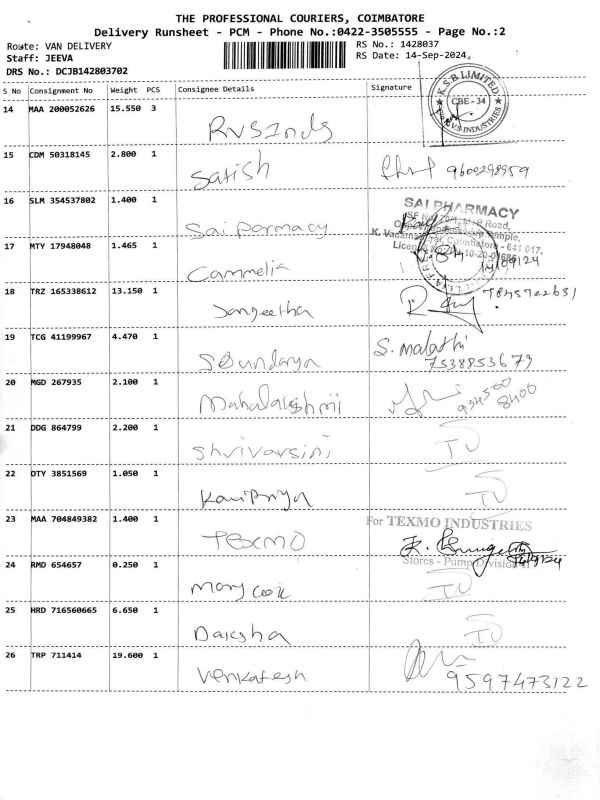 THE PROFESSIONAL COURIERS, COIMBATORE
Delivery Runsheet - PCM - Phone No.:0422-3505555 - Page No.:2
Route: VAN DELIVERY RS No.: 1428037
Staff: JEEVA RS Date: 14-Sep-2024
DRS No.: DCJB142803702
S No Consignment No Weight PCS Consignee Details Signature
K.S.B LIMITED
CBE - 34
R.V.S INDUSTRIES
14 MAA 200052626 15.550 3 RVS Inds
15 CDM 50318145 2.800 1 Satish 9600298959
16 SLM 354537802 1.400 1 Sai parmacy
SAI PHARMACY
Coimbatore - 641 017.
17 MTY 17948048 1.465 1 Cammelia 14/09/24
18 TRZ 165338612 13.150 1 Sangeetha
19 TCG 41199967 4.470 1 Soundarya S. malathi
7538853679
20 MGD 267935 2.100 1 Mahalakshmi 934500
8400
21 DDG 864799 2.200 1 Shrivarsini
22 OTY 3851569 1.050 1 Kavipriya
23 MAA 704849382 1.400 1 TEXMO
For TEXMO INDUSTRIES
Stores - Pump Division
24 RMD 654657 0.250 1
25 HRD 716560665 6.650 1 Daksha
26 TRP 711414 19.600 1 Venkatesh
9597473122